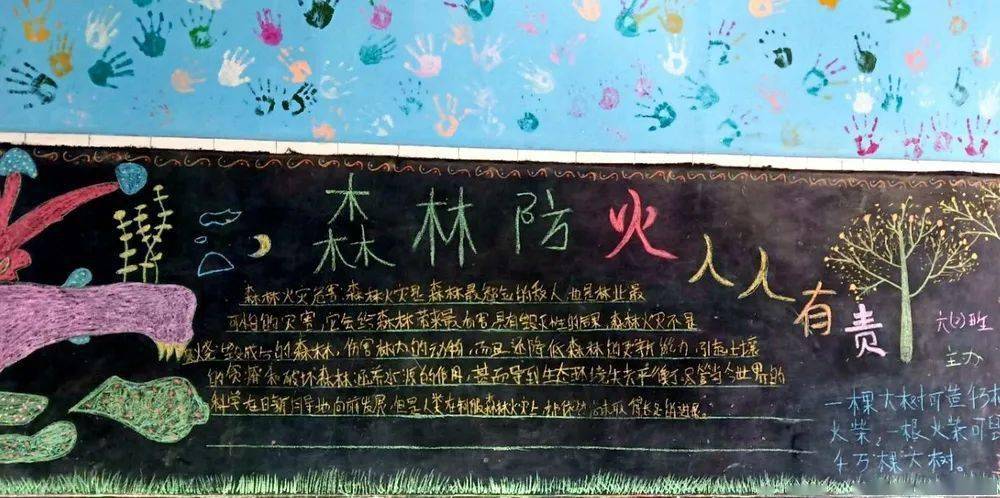 森林防火
人人有责
六(2)班
主办
森林火灾危害:森林火灾是森林最的敌人 也是林业最
可怕的灾害,它会给森林带来最有害具有毁灭性的后果,森林火灾不是
烧毁成片的森林,伤害林内的动物,而且还降低森林的更新能力,引起土壤
的贫瘠和破坏森林涵养水源的作用,甚而导到生态环境失去平衡,尽管当今世界的
科学在日新月异地向前发展,但是人类在制服森林火灾上 却依然取得长足的进展。
一棵大树可造
火柴,一根火柴可
千万棵大树。